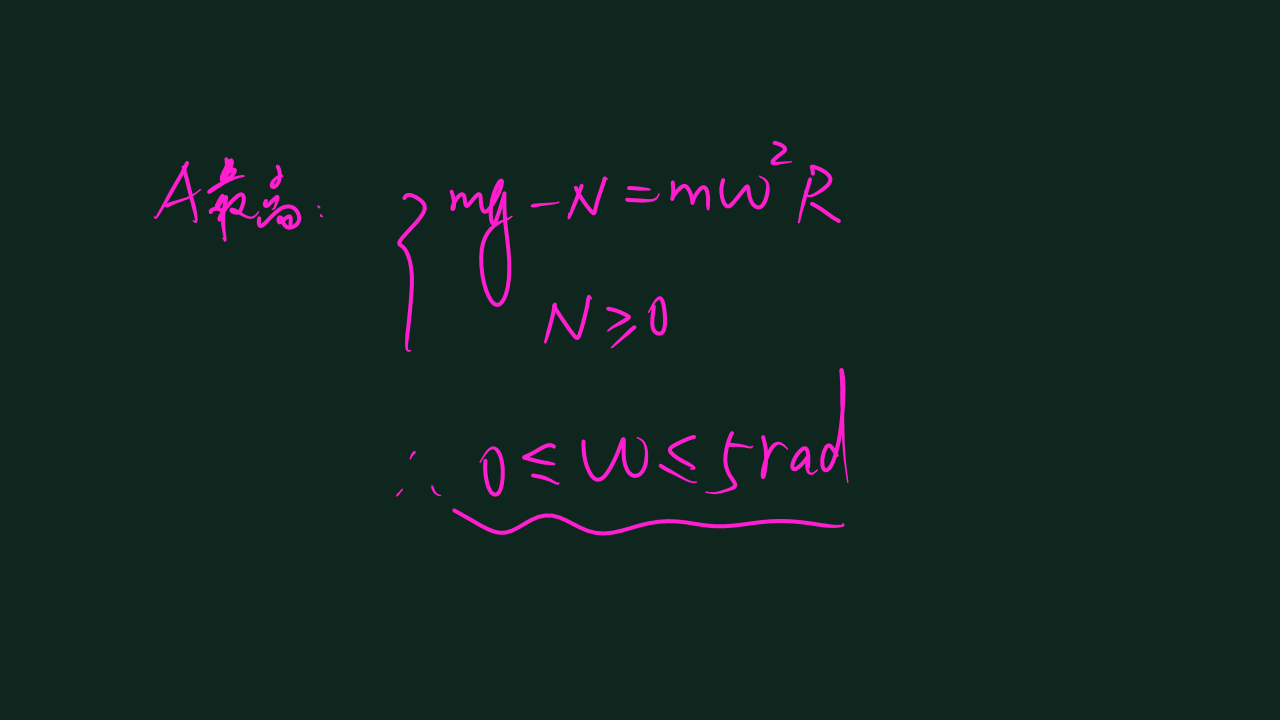 A最高: { mg - N = mω²R
N ≥ 0
∴ 0 ≤ ω ≤ 5rad